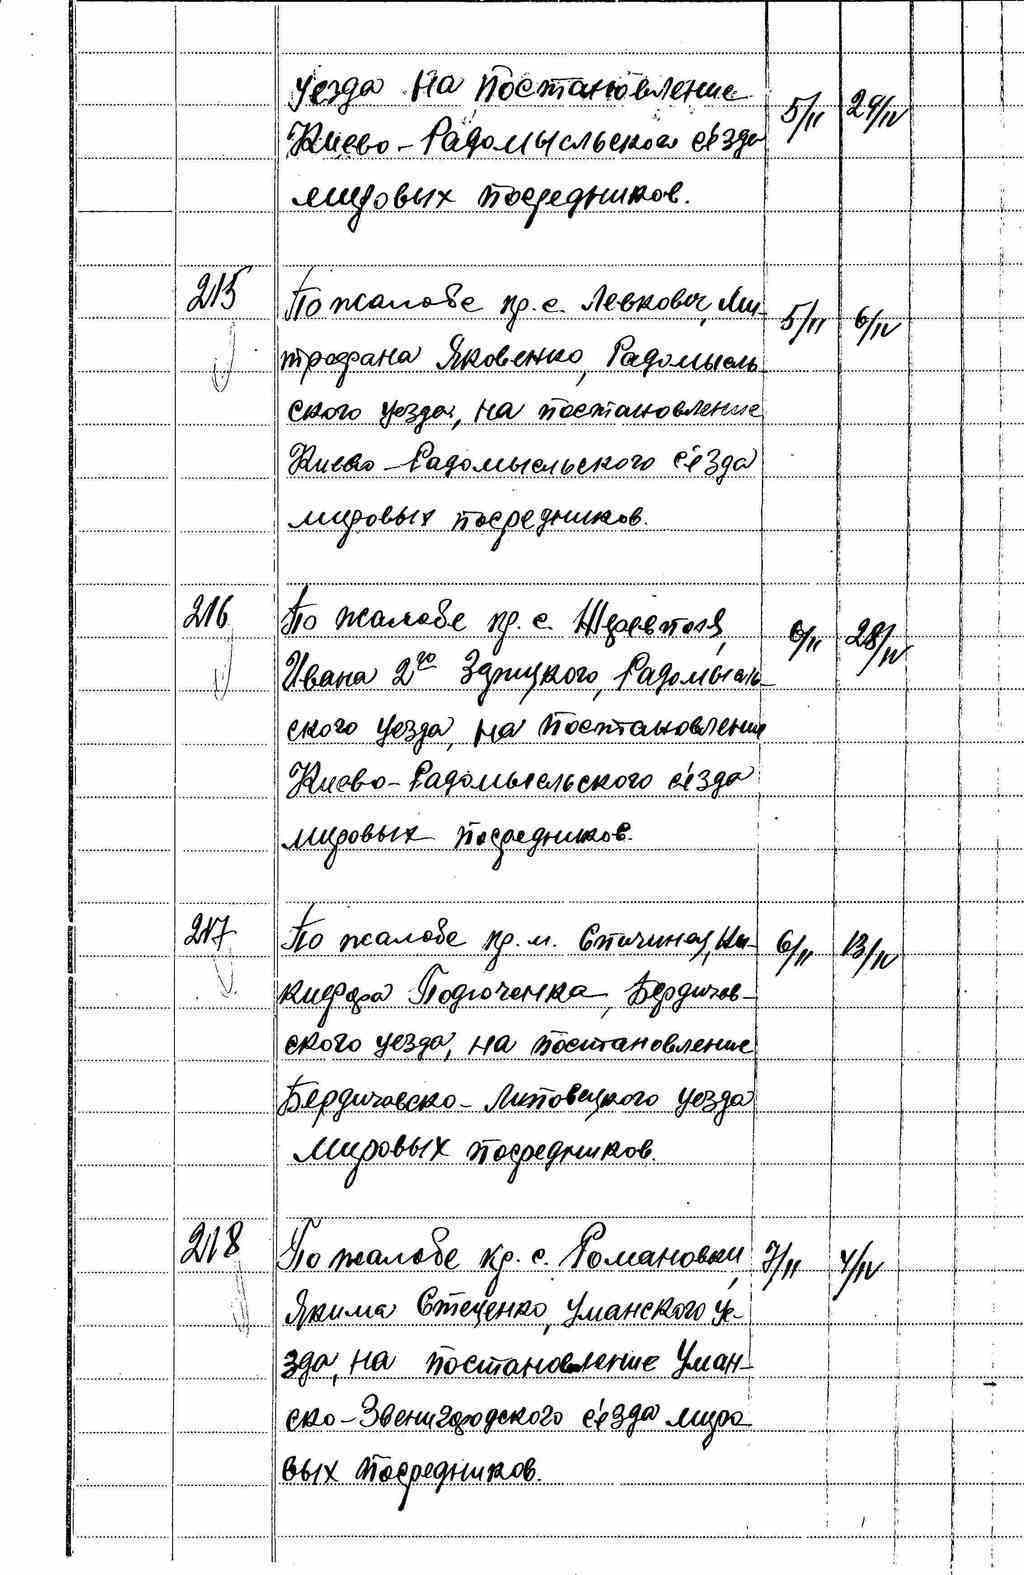 уезда на постановление
Киево-Радомысльского с'езда 5/II 29/IV
мировых посредников.
215 По жалобе кр. с. Левкович, Ми- 5/II 6/IV
трофана Яковенко, Радомысль-
ского уезда, на постановление
Киево-Радомысльского с'езда
мировых посредников.
216 По жалобе кр. с. 6/II 28/IV
Ивана 2го Радомысль-
ского уезда, на постановление
Киево-Радомысльского с'езда
мировых посредников.
217 По жалобе кр. м. Спичинец, Ни- 6/II 13/IV
кифора Бердичев-
ского уезда, на постановление
Бердичевско-Липовецкого уезда
мировых посредников.
218 По жалобе кр. с. Романовки, 7/II 4/IV
Якима Стеценко, Уманского уе-
зда, на постановление Уман-
ско-Звенигородского с'езда миро
вых посредников.